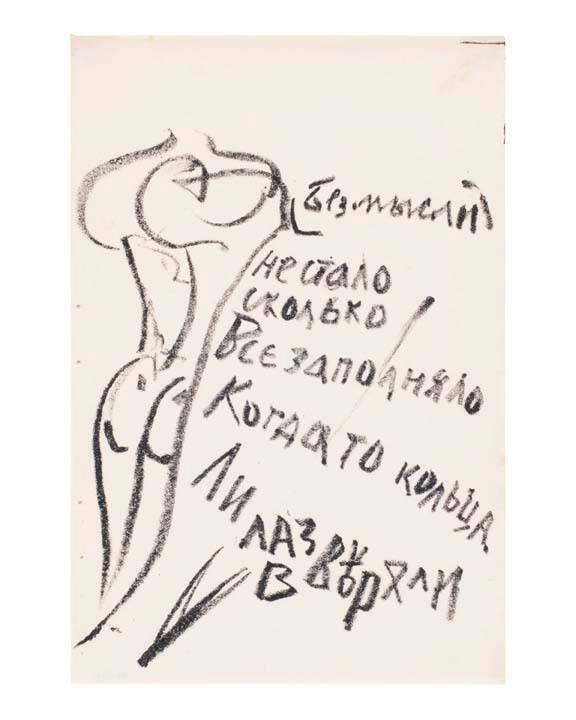 Безмыслия
не стало
сколько
Все заполняло
Когда то кольца
Ли лазри
Вверх ли